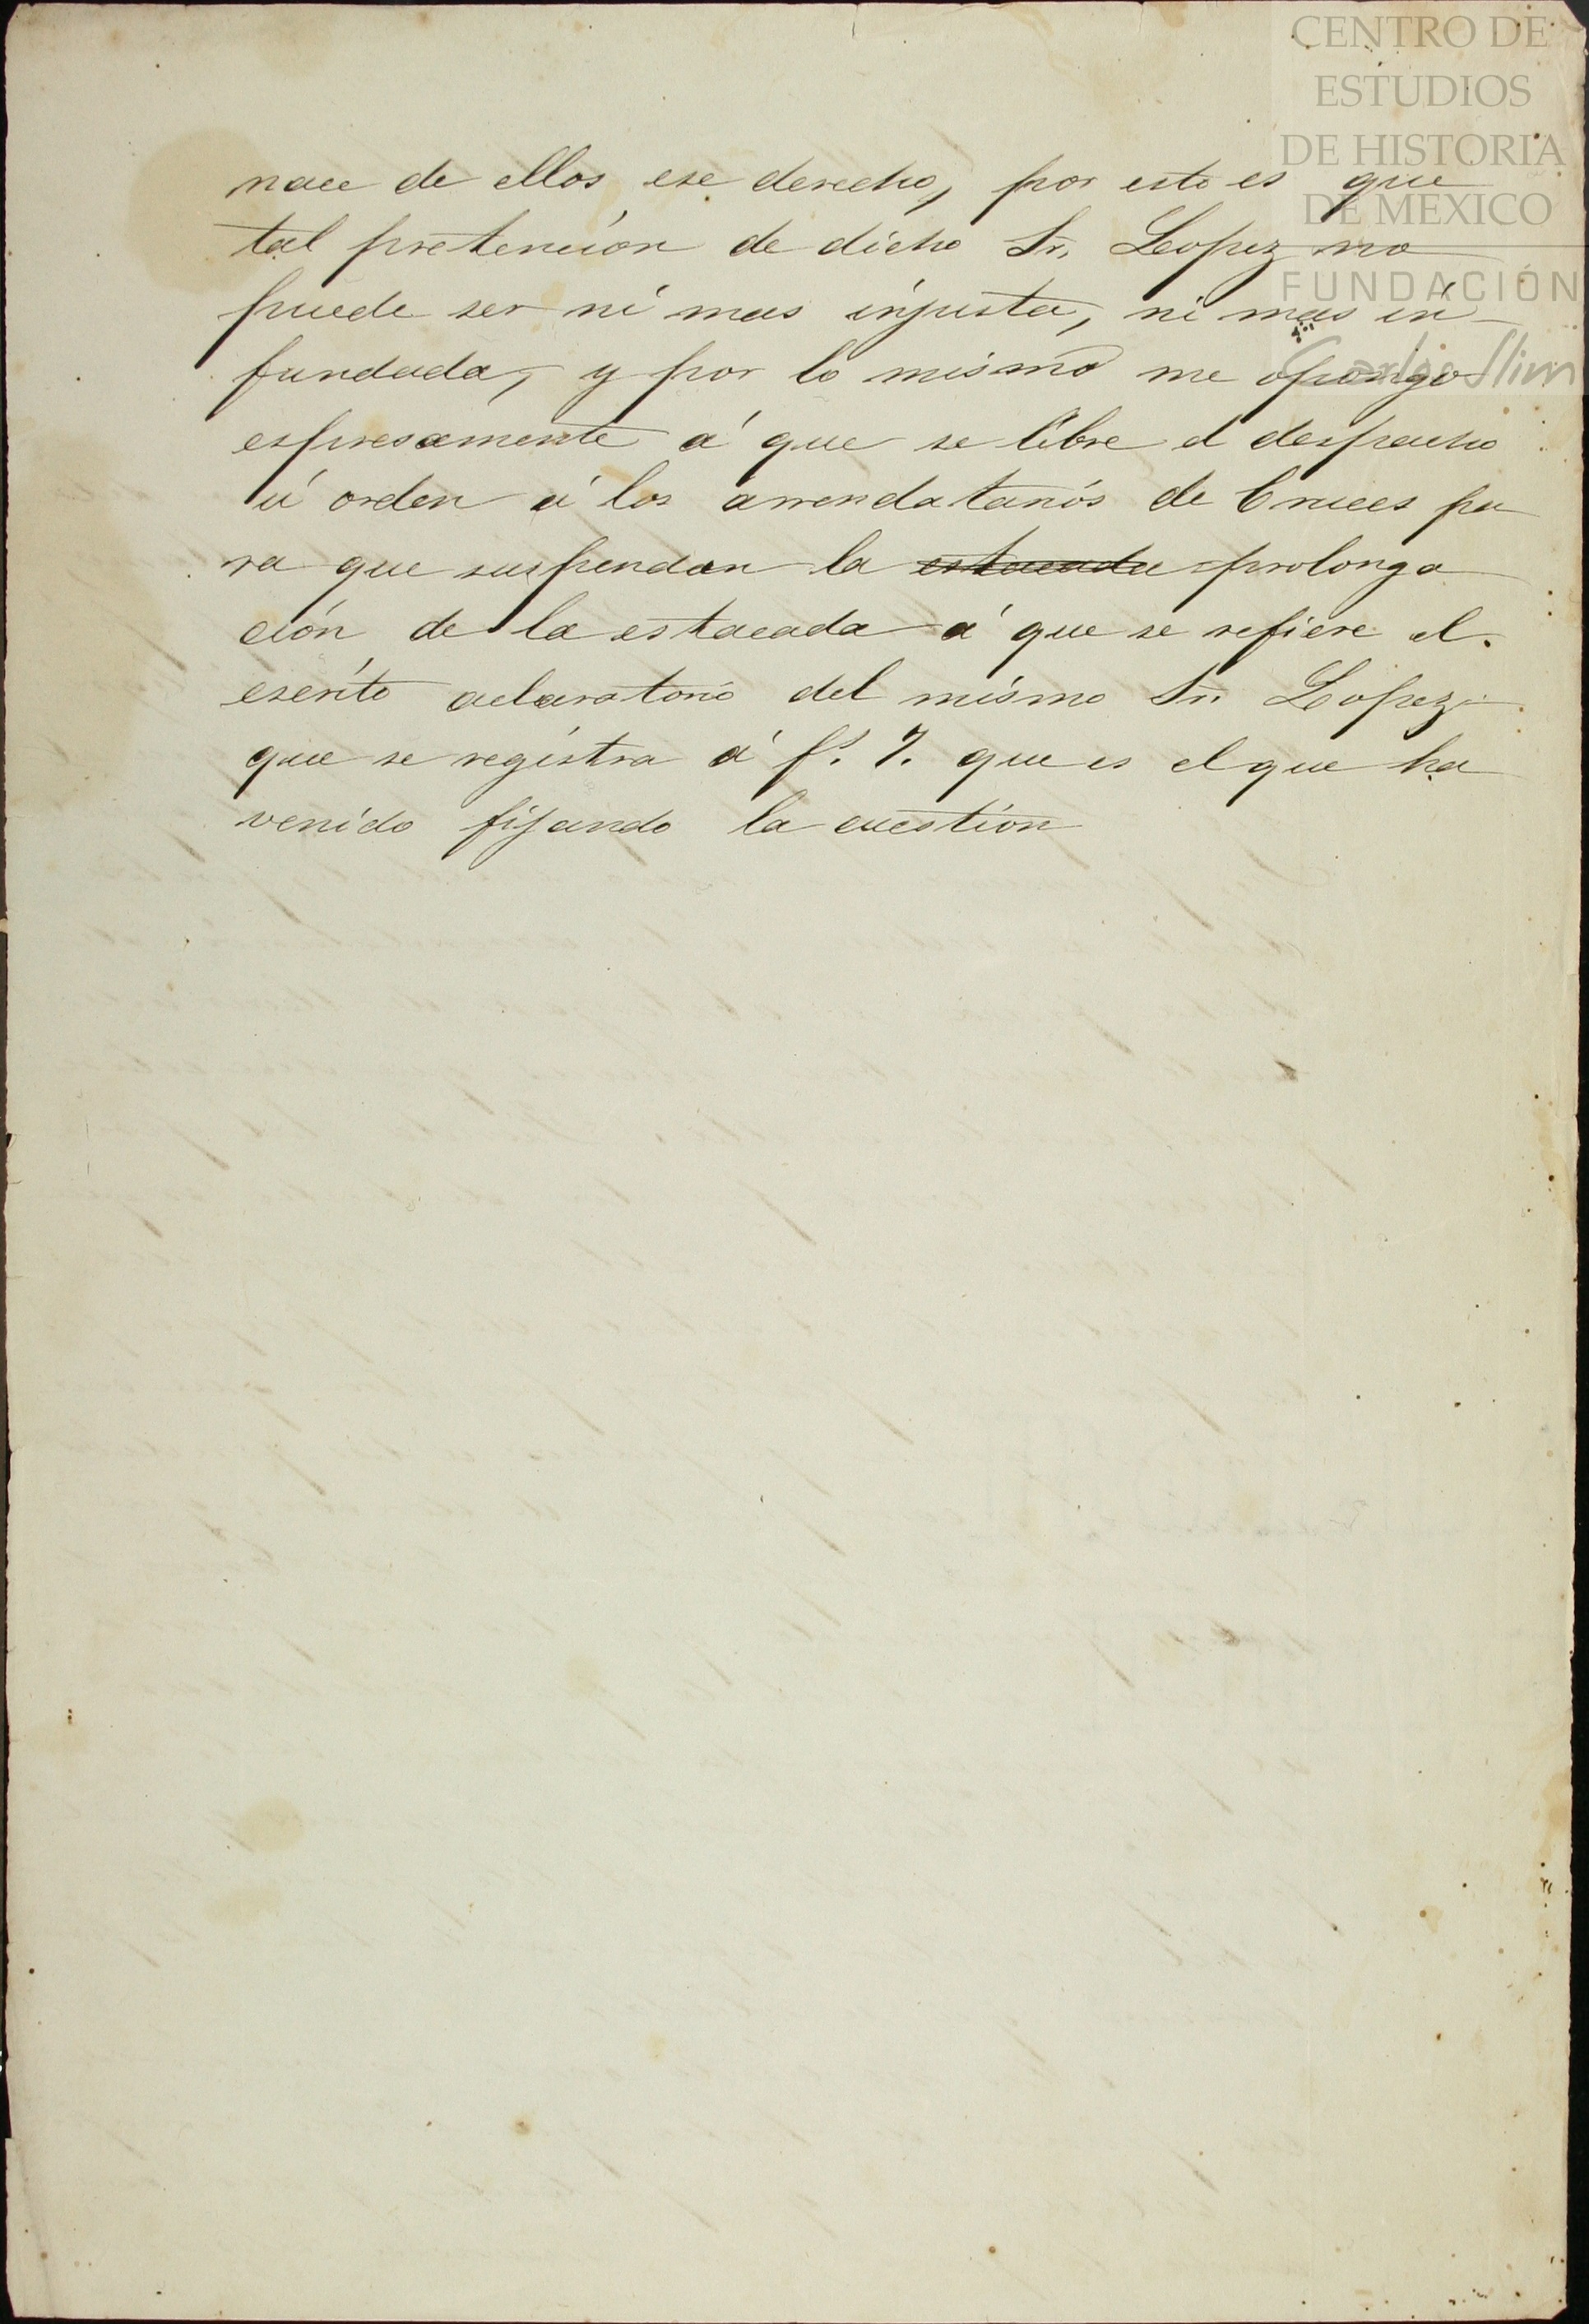 CENTRO DE
ESTUDIOS
DE HISTORIA
DE MEXICO
FUNDACIÓN
Carlos Slim
nace de ellos ese derecho, por esto es que
tal pretencion de dicho Sr. Lopez no
puede ser ni mas injusta, ni mas in
fundada, y por lo mismo me opongo
espresamente á que se libre el despacho
ú orden á los arrendatarios de Cruces pa
ra que suspendan la estacada prolonga
ción de la estacada á que se refiere el
escrito aclaratorio del mismo Sr. Lopez
que se registra á fs. 7. que es el que ha
venido fijando la cuestion